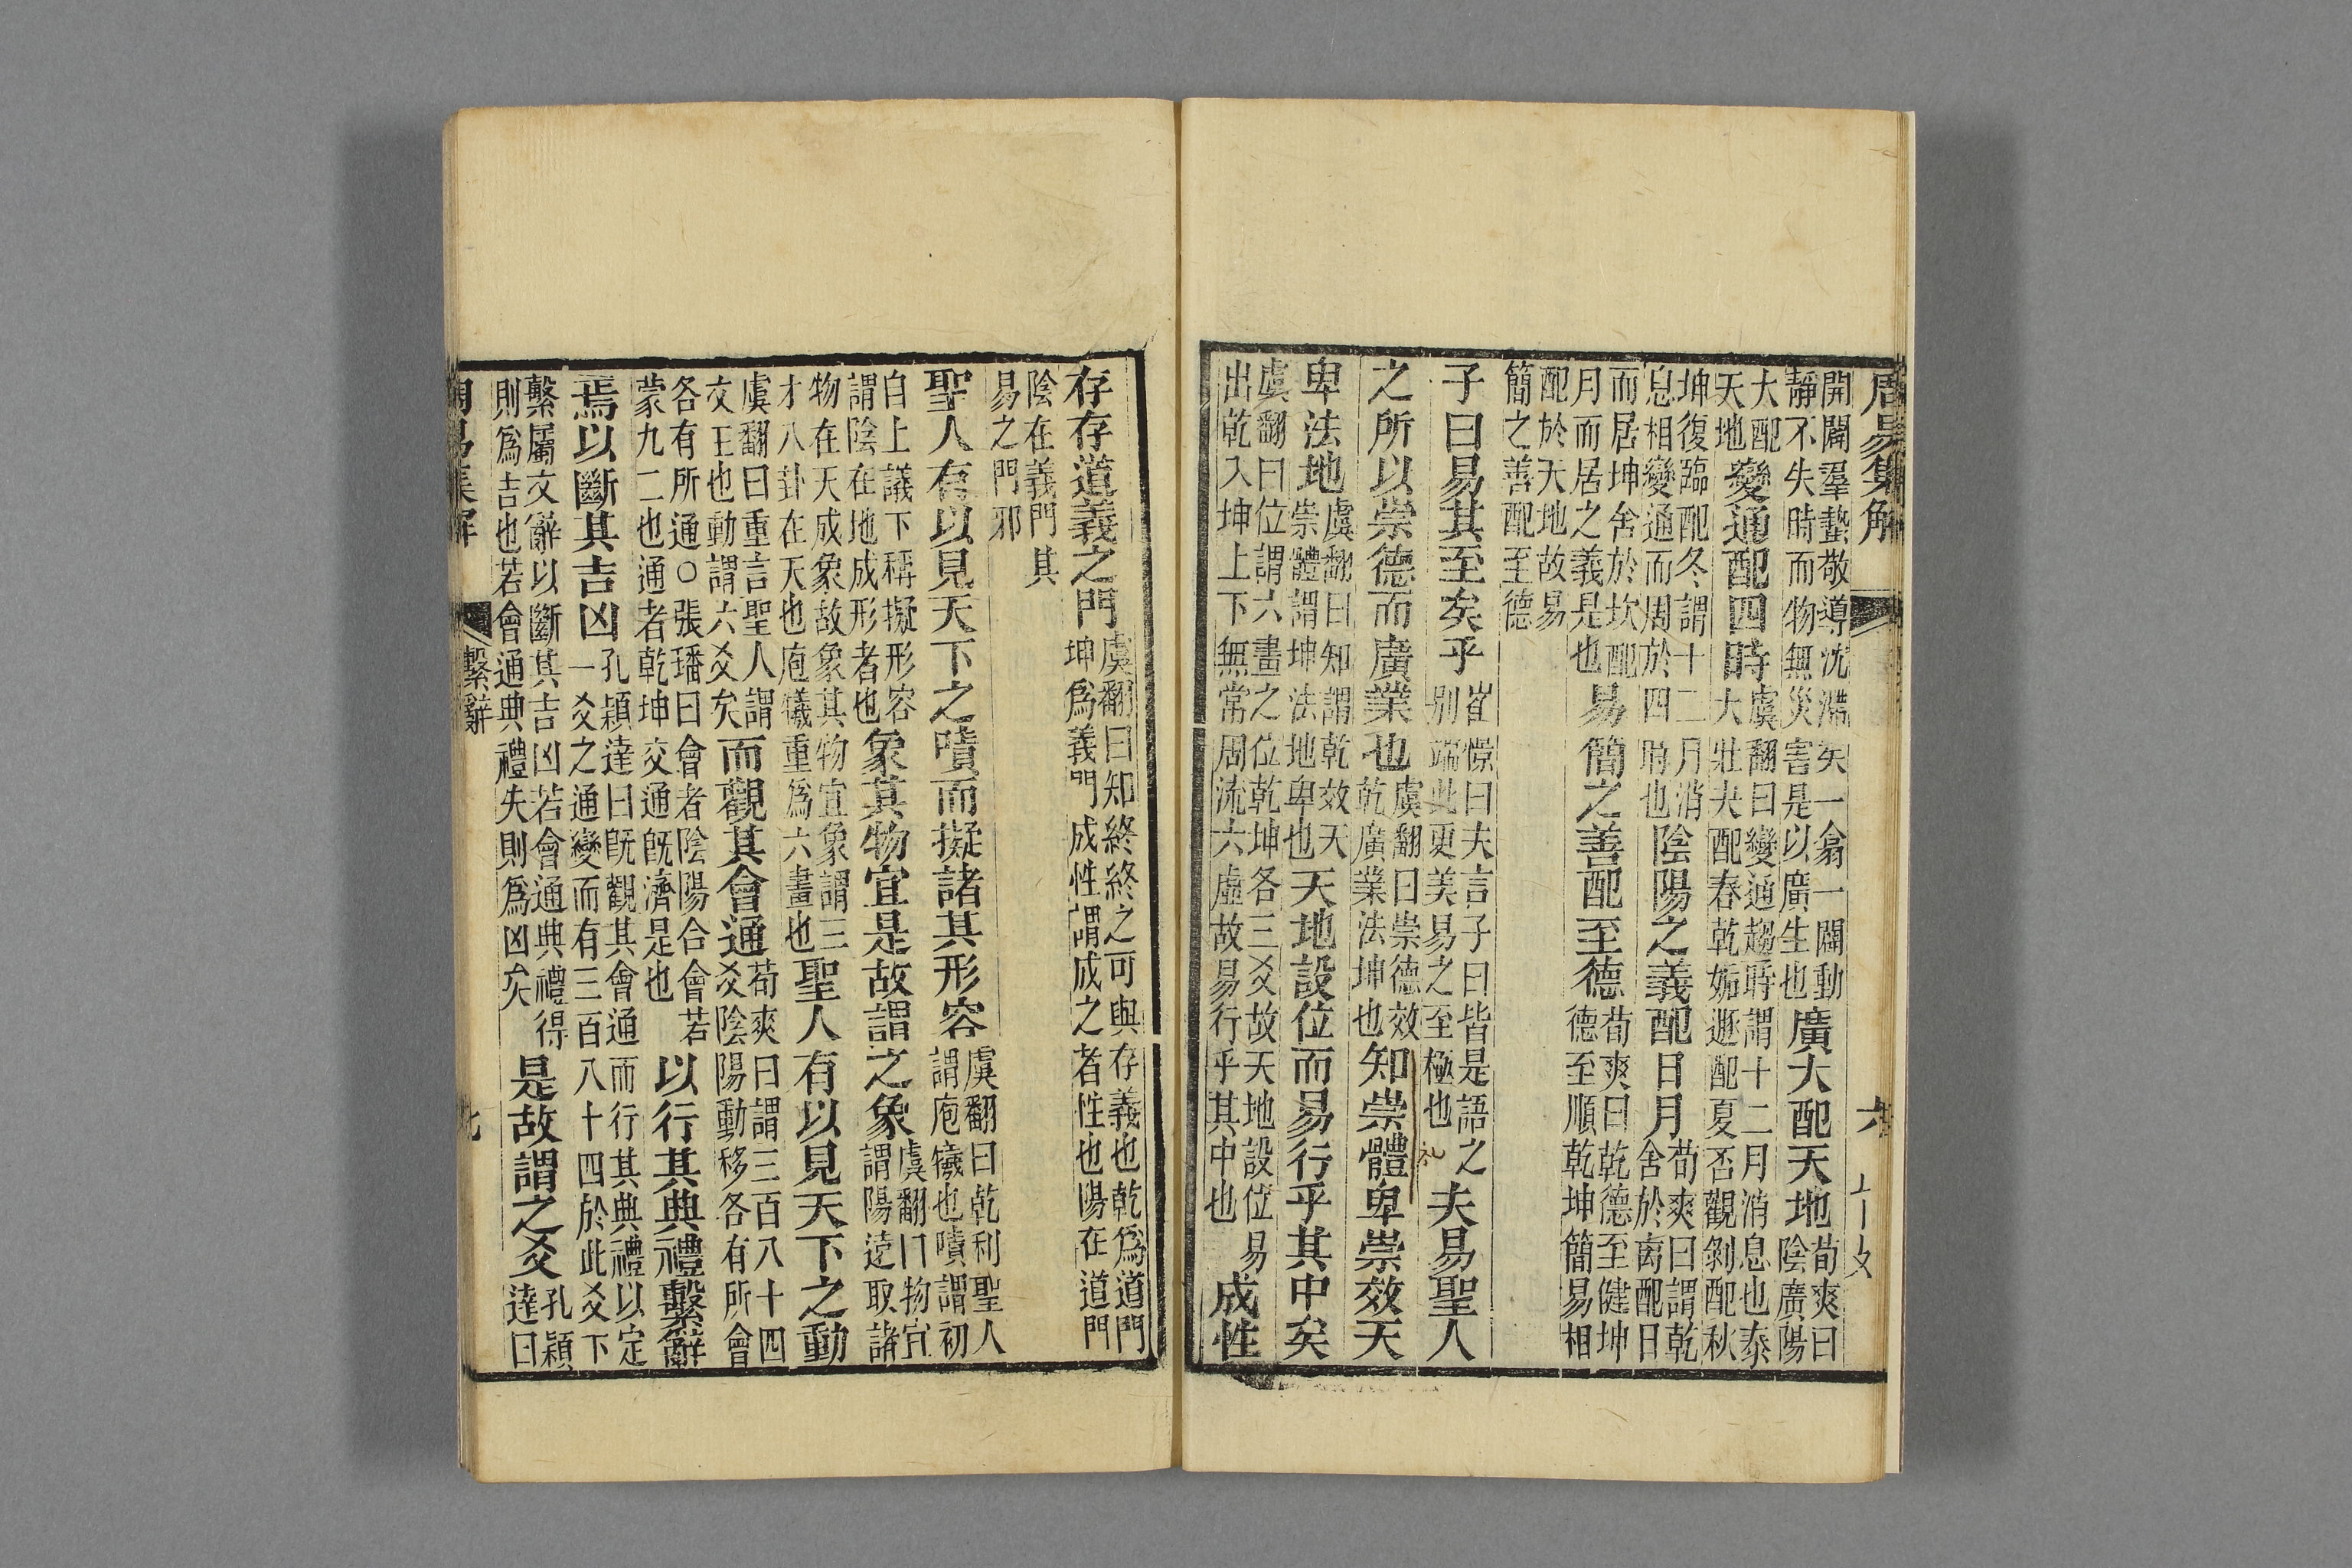 周易集解
六
開闢羣蟄敬導沈滯矣一翕一闢動
靜不失時而物無災害是以廣生也
廣大配天地
荀爽曰陰廣陽
大配天地
變通配四時
虞翻曰變通趨時謂十二月消息也泰
大壯夬配春乾姤遯配夏否觀剝配秋
坤復臨配冬謂十二月消
息相變通而周於四時也
陰陽之義配日月
荀爽曰謂乾
舍於离配日
而居坤舍於坎配
月而居之義是也
易簡之善配至德
荀爽曰乾德至健坤
德至順乾坤簡易相
配於天地故易
簡之善配至德
子曰易其至矣乎
崔憬曰夫言子曰皆是語之
別端此更美易之至極也
夫易聖人
之所以崇德而廣業也
虞翻曰崇德效
乾廣業法坤也
知崇體卑崇效天
卑法地
虞翻曰知謂乾效天
崇體謂坤法地卑也
天地設位而易行乎其中矣
虞翻曰位謂六畫之位乾坤各三爻故天地設位易
出乾入坤上下無常周流六虛故易行乎其中也
成性
存存道義之門
虞翻曰知終終之可與存義也乾爲道門
坤爲義門成性謂成之者性也陽在道門
陰在義門其
易之門邪
聖人有以見天下之嘖而擬諸其形容
虞翻曰乾利聖人
謂庖犧也嘖謂初
自上議下稱擬形容
謂陰在地成形者也
象其物宜是故謂之象
虞翻曰物宜
謂陽遠取諸
物在天成象故象其物宜象謂三
才八卦在天也庖犧重爲六畫也
聖人有以見天下之動
虞翻曰重言聖人謂
文王也動謂六爻矣
而觀其會通
荀爽曰謂三百八十四
爻陰陽動移各有所會
各有所通○張璠曰會者陰陽合會若
蒙九二也通者乾坤交通旣濟是也
以行其典禮繫辭
焉以斷其吉凶
孔穎達曰旣觀其會通而行其典禮以定
一爻之通變而有三百八十四於此爻下
繫屬文辭以斷其吉凶若會通典禮得
則爲吉也若會通典禮失則爲凶矣
是故謂之爻
孔穎
達曰
周易集解
繫辭
七